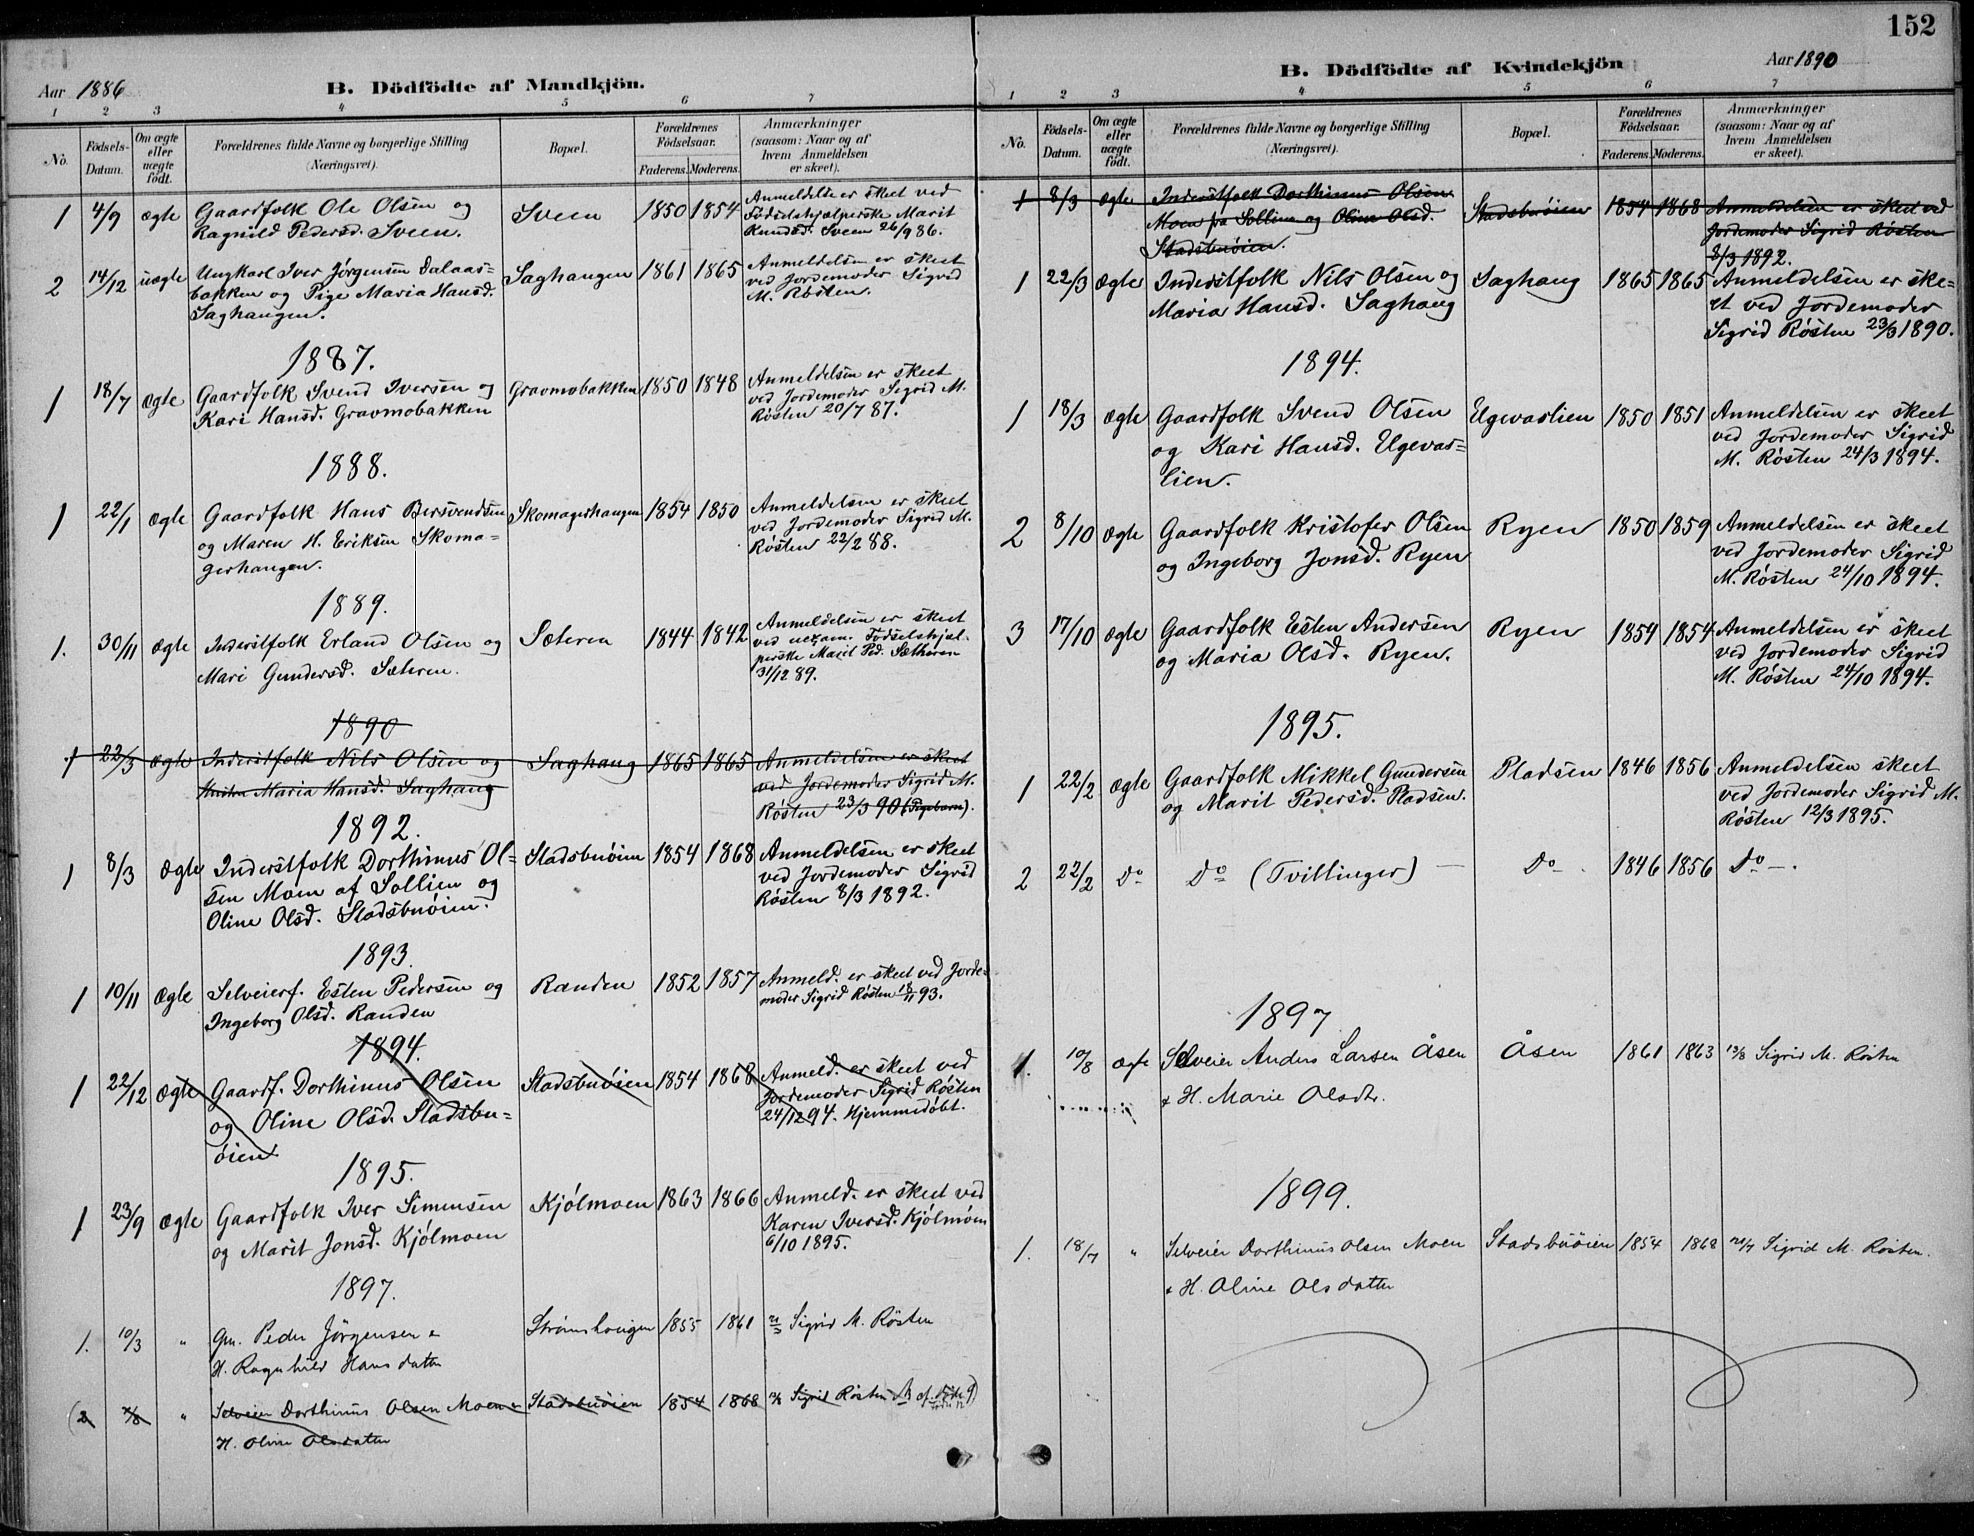 Aar 1886
B. Dödfödte af Mandkjön.
1 2 3 4 5 6 7
No. Födsels-Datum. Om ægte eller uægte födt. Forældrenes fulde Navne og borgerlige Stilling (Næringsvei). Bopæl. Forældrenes Födselsaar. Faderens. Moderens. Anmærkninger (saasom: Naar og af hvem Anmeldelsen er skeet).
1 4/9 ægte Gaardfolk Ole Olsen og Sveen 1850 1854 Anmeldelse er skeet ved
Ragnild Pedersd. Sveen. Födselshjælperske Marit
Knudsd. Sveen 26/9 86.
2 14/12 uægte Ungkarl Iver Jørgensen Dalaas= Saghangen 1861 1865 Anmeldelsen er skeet
bakken og Pige Maria Hansd. ved Jordemoder Sigrid
Saghangen. M. Røsten.
1887.
1 18/7 ægte Gaardfolk Svend Iversen og Gravmobakken 1850 1848 Anmeldelsen er skeet
Kari Hansd. Gravmobakken ved Jordemoder Sigrid M.
Røsten 20/7 87.
1888.
1 22/1 ægte Gaardfolk Hans Bersvendsen Skomagerhangen 1854 1850 Anmeldelsen er skeet
og Maren H. Eriksen Skoma= ved Jordemoder Sigrid M.
gerhangen. Røsten 22/2 88.
1889.
1. 30/11 ægte Inderstfolk Erland Olsen og Sæteren 1844 1842 Anmeldelsen er skeet
Mari Gundersd. Sæteren. ved uexam. Födselshjæl=
perske Marit Ped. Sætheren
31/12 89.
1890
1 22/3 ægte Inderstfolk Nils Olsen og Saghaug 1865 1865 Anmeldelsen er skeet
Maria Hansd. Saghaug ved Jordemoder Sigrid M.
Røsten 23/3 90 (Pigebarn).
1892.
1 8/3 ægte Inderstfolk Dorthinus Ol= Stadsbuöien 1854 1868 Anmeldelsen er skeet
sen Moen af Sollien og ved Jordemoder Sigrid
Oline Olsd. Stadsbuöien. Røsten 8/3 1892.
1893.
1 10/11 ægte Selveierf. Esten Pedersen og Randen 1852 1857 Anmeld. er skeet ved Jorde=
Ingeborg Olsd. Randen moder Sigrid Røsten 18/11 93.
1894.
1 22/12 ægte Gaardf. Dorthinus Olsen Stadsbuöien 1854 1868 Anmeld. er skeet ved
og Oline Olsd. Stadsbu= Jordemoder Sigrid Røsten
öien 24/12 94. Hjemmedøbt.
1895.
1 23/9 ægte Gaardfolk Iver Simensen Kjölmoen 1863 1866 Anmeld. er skeet ved
og Marit Jonsd. Kjölmoen Karen Iversd. Kjölmoen
6/10 1895.
1897.
1. 10/3 " Gm. Peder Jörgensen & Strömshaugen 1855 1861 Sigrid M. Rösten
H. Ragnhild Hansdatter
(2 " Selveier Dorthinus Olsen Moen & Stadsbuöien 1854 1868 Sigrid Rösten
H. Oline Olsdatter

152
Aar 1890
B. Dödfödte af Kvindekjön
1 2 3 4 5 6 7
No. Födsels-Datum. Om ægte eller uægte födt. Forældrenes fulde Navne og borgerlige Stilling (Næringsvei). Bopæl. Forældrenes Födselsaar. Faderens. Moderens. Anmærkninger (saasom: Naar og af hvem Anmeldelsen er skeet).
1 8/3 ægte Inderstfolk Dorthinus Olsen Stadsbuöien 1854 1868 Anmeldelsen er skeet ved
Moen fra Sollien og Oline Olsd. Jordemoder Sigrid Røsten
Stadsbuöien. 8/3 1892.
1 22/3 ægte Inderstfolk Nils Olsen og Saghaug 1865 1865 Anmeldelsen er ske=
Maria Hansd. Saghaug et ved Jordemoder
Sigrid Røsten 23/3 1890.
1894.
1 18/3 ægte Gaardfolk Svend Olsen Elgevaslien 1850 1851 Anmeldelsen er skeet
og Kari Hansd. Elgevas= ved Jordemoder Sigrid
lien. M. Røsten 24/3 1894.
2 8/10 ægte Gaardfolk Kristofer Olsen Ryen 1850 1859 Anmeldelsen er skeet
og Ingeborg Jonsd. Ryen ved Jordemoder Sigrid
M. Røsten 24/10 1894.
3 17/10 ægte Gaardfolk Esten Andersen Ryen 1854 1854 Anmeldelsen er skeet
og Maria Olsd. Ryen. ved Jordemoder Sigrid
M. Røsten 24/10 1894.
1895.
1 22/2 ægte Gaardfolk Mikkel Gundersen Pladsen 1846 1856 Anmeldelsen skeet
og Marit Pedersd. Pladsen. ved Jordemoder Sigrid M.
Røsten 12/3 1895.
2 22/2 Do Do (Tvillinger) — Do 1846 1856 Do —.
1897
1. 10/8 ægte Selveier Anders Larsen Åsen Åsen 1861 1863 Sigrid M. Rösten
& H. Marie Olsdtr.
1899.
1. 18/7 " Selveier Dorthinus Olsen Moen Stadsbuöien 1854 1868 Sigrid M. Rösten.
& H. Oline Olsdatter